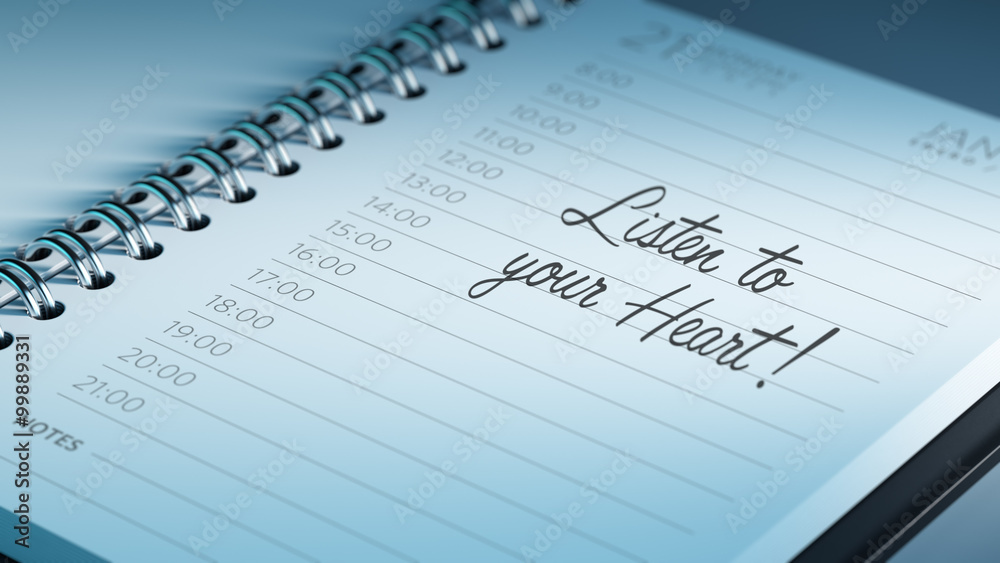 JAN
8:00
9:00
10:00
11:00
12:00
13:00
14:00
15:00
16:00
17:00
18:00
19:00
20:00
21:00
NOTES
Listen to
your Heart!
Adobe Stock | #99889331